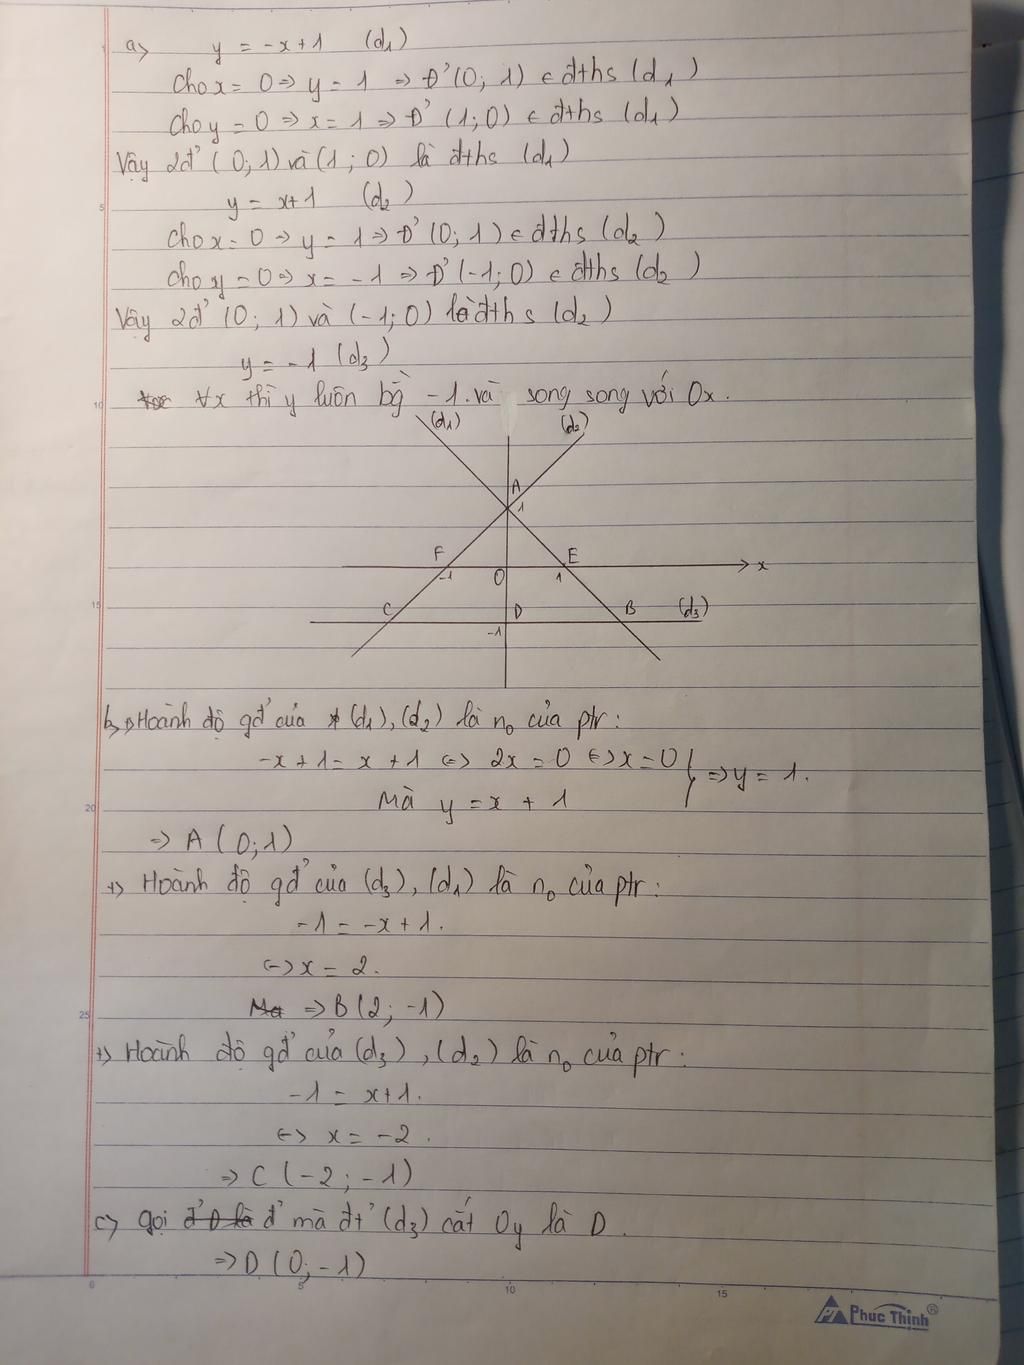 a) y = -x+1 (d1)
Cho x = 0 => y = 1 => Đ' (0; 1) ∈ đths (d1)
Cho y = 0 => x = 1 => Đ' (1; 0) ∈ đths (d1)
Vậy 2đ' (0; 1) và (1; 0) là đths (d1)
y = x+1 (d2)
Cho x = 0 => y = 1 => Đ' (0; 1) ∈ đths (d2)
Cho y = 0 => x = -1 => Đ' (-1; 0) ∈ đths (d2)
Vậy 2đ' (0; 1) và (-1; 0) là đths (d2)
y = -1 (d3)
∀x thì y luôn bằ -1. và song song với Ox.
(d1) (d2)
A
1
F E
-1 O 1 x
C D B (d3)
-1
b) +) Hoành độ gđ' của (d1), (d2) là n0 của ptr:
-x + 1 = x + 1 <=> 2x = 0 <=> x = 0 } => y = 1.
Mà y = x + 1
=> A (0; 1)
+) Hoành độ gđ' của (d3), (d1) là n0 của ptr:
-1 = -x + 1.
<=> x = 2.
=> B (2; -1)
+) Hoành độ gđ' của (d3), (d2) là n0 của ptr:
-1 = x+1.
<=> x = -2.
=> C (-2; -1)
c) Gọi đ' mà đt' (d3) cắt Oy là D.
=> D (0; -1)
5
10
15
20
25
0 5 10 15
Phuc Thinh®